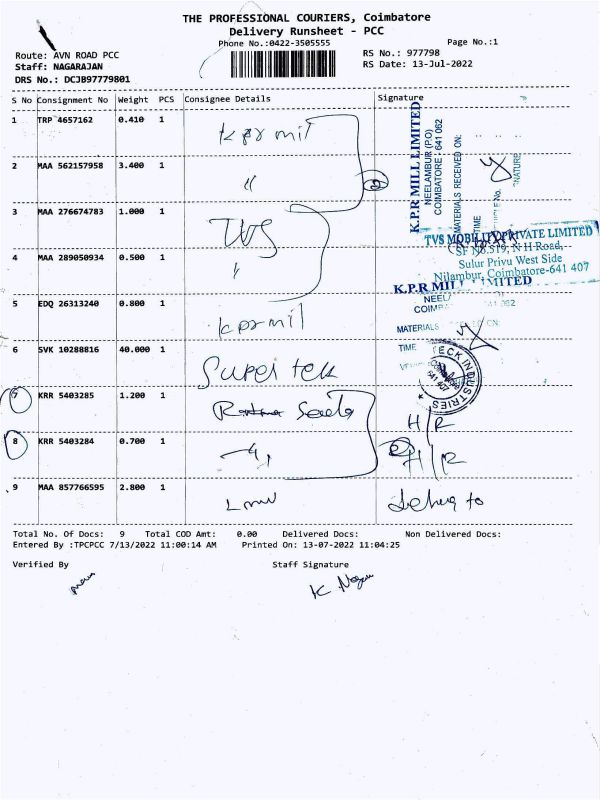 THE PROFESSIONAL COURIERS, Coimbatore
Delivery Runsheet - PCC
Phone No.:0422-3505555
Page No.:1
Route: AVN ROAD PCC
RS No.: 977798
Staff: NAGARAJAN
RS Date: 13-Jul-2022
DRS No.: DCJB97779801
S No Consignment No Weight PCS Consignee Details Signature
1 TRP 4657162 0.410 1 kpr mil
2 MAA 562157958 3.400 1 "
3 MAA 276674783 1.000 1 TVS
4 MAA 289050934 0.500 1 "
5 EDQ 26313240 0.800 1 kpr mil
6 SVK 10288816 40.000 1 Super tek
7 KRR 5403285 1.200 1 H/R
8 KRR 5403284 0.700 1 H/R
9 MAA 857766595 2.800 1
K.P.R MILL LIMITED
NEELAMBUR (P.O)
COIMBATORE - 641 062
MATERIALS RECEIVED ON:
TIME
TVS MOBILITY PRIVATE LIMITED
SF No.519, N H Road,
Sulur Privu West Side
Nilambur, Coimbatore-641 407
K.P.R MILL LIMITED
MATERIALS
TIME
TECK INDUSTRIES
641 407
Total No. Of Docs: 9 Total COD Amt: 0.00 Delivered Docs: Non Delivered Docs:
Entered By :TPCPCC 7/13/2022 11:00:14 AM Printed On: 13-07-2022 11:04:25
Verified By Staff Signature